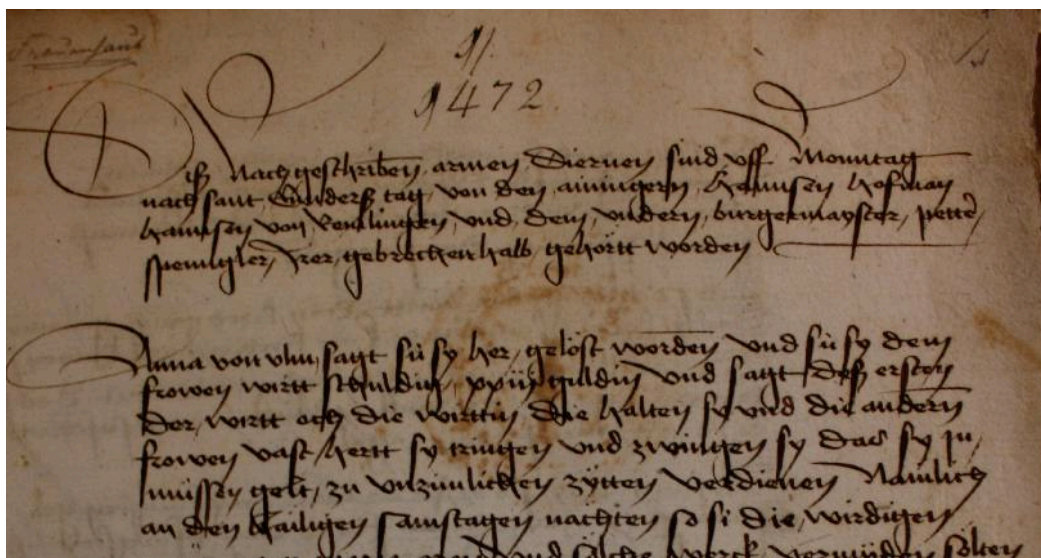 Frauenhaus
91.
1472
Diß nachgeschriben armen Diernen sind vff Monntag
nach sant Gunderß tag von den ainingern Hannsen Hofman
Hannsen von Reutlingen vnd dem vndern burgermayster petter
spenngler irer gebrechen halb gehörtt worden
Anna von vlm sagt sü sy her gelöst worden vnd sü sy dem
frowen wirtt schuldig xxiiij guldin vnd sagt deß ersten
der wirtt och die wirttin die halten sy vnd die andern
frowen vast hertt sy tringen vnd zwingen sy das sy jn
müssen gelt zu vnzimlichen zytten verdienen Nämlich
an den hailigen samstagen nachten so si die wirdigen
vnd söliche werck vermyden sölten